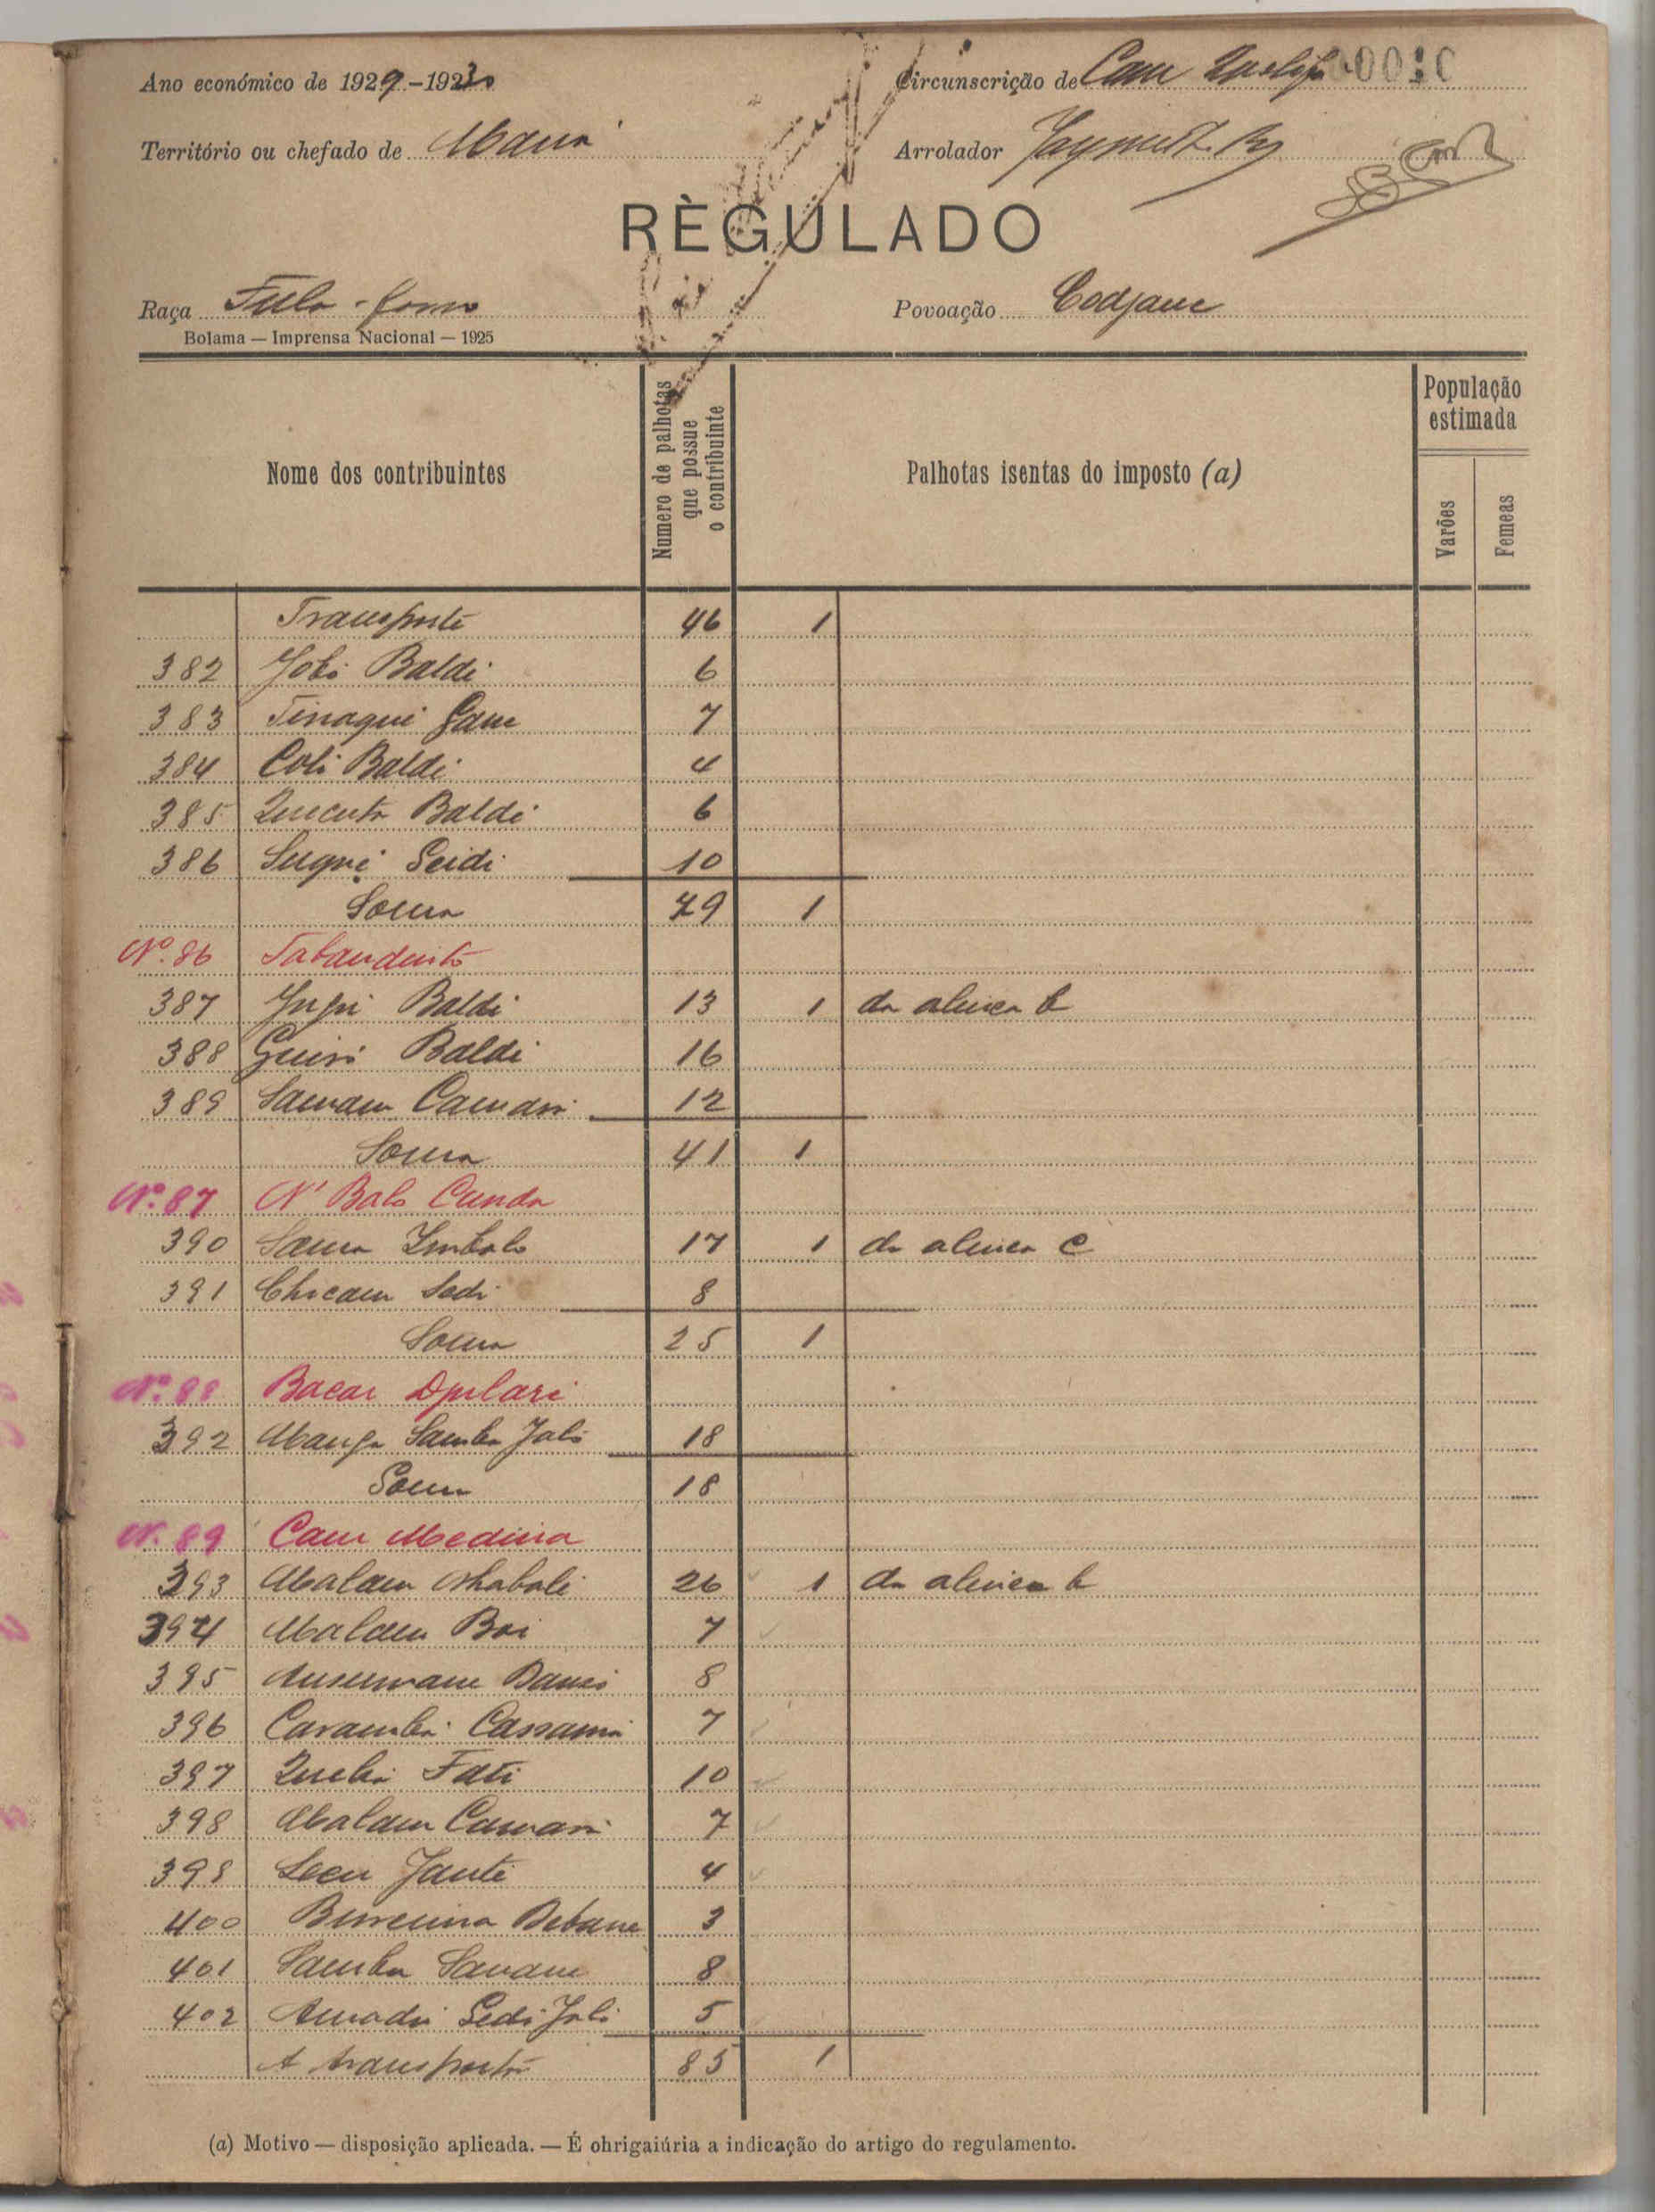 Ano económico de 1929-1930
Circunscrição de
Território ou chefado de Mana
Arrolador
RÈGULADO
Raça Fula-forro
Povoação Codjane
Bolama — Imprensa Nacional — 1925
Nome dos contribuintes
Numero de palhotas que possue o contribuinte
Palhotas isentas do imposto (a)
População estimada
Varões
Femeas
Transporte 46 1
382 Jobo Baldi 6
383 7
384 Coli Baldi 4
385 Quecuta Baldi 6
386 Seidi 10
Soma 79 1
Nº 86 Tabandinto
387 Baldi 13 1 da alinea b
388 Baldi 16
389 Camara 12
Soma 41 1
Nº 87 N' Balo Cunda
390 Soma Embalo 17 1 da alinea c
391 Chicam Sedi 8
Soma 25 1
Nº 88 Bacar Djulari
392 Manga Samba Jaló 18
Soma 18
Nº 89 Cam Medina
393 Malam 26 1 da alinea b
394 Malam Boi 7
395 Ansumane 8
396 Caramba Cassama 7
397 Queba Fati 10
398 Malam Camara 7
399 4
400 3
401 Samba Savane 8
402 Amadu Sedi Jaló 5
A transportar 85 1
(a) Motivo — disposição aplicada. — É ohrigaiúria a indicação do artigo do regulamento.